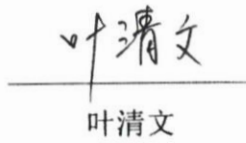 叶清文
叶清文